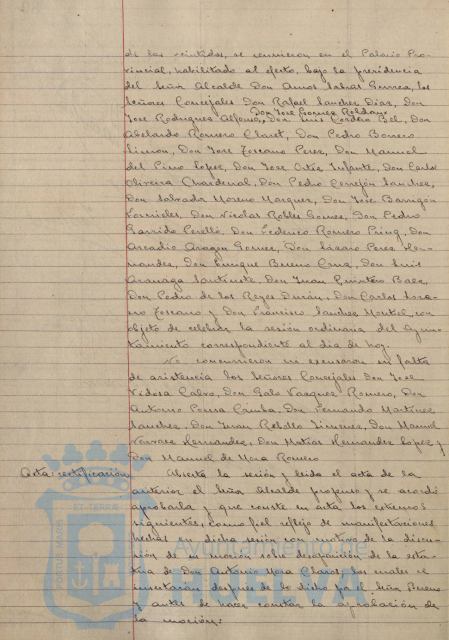 de las veintidos, se reunieron en el Palacio Pro-
vincial, habilitado al efecto, bajo la presidencia
del Señor Alcalde Don Amos Sabras Gurrea, los
Señores Concejales Don Rafael Sanchez Diaz, Don
Don José Gomez Roldan
José Rodriguez Alfonso, Don Luis Cordero Bel, Don
Abelardo Romero Claret, Don Pedro Borrero
Limon, Don José Toscano Perez, Don Manuel
del Pino Lopez, Don José Ortiz Infante, Don Carlos
Oliveira Chardenal, Don Pedro Cerrejon Sanchez,
Don Salvador Moreno Marquez, Don José Barrigon
Don Nicolas Robles Gomez, Don Pedro
Garrido Perelló, Don Federico Romero Don
Arcadio Aragon Gomez, Don Lazaro Perez Her-
nandez, Don Enrique Bueno Cruz, Don Luis
Don Juan Quintero Baez,
Don Pedro de los Reyes Durán, Don Carlos
Toscano y Don Francisco Sanchez con
objeto de celebrar la sesión ordinaria del Ayun-
tamiento correspondiente al dia de hoy.
No concurrieron ni excusaron su falta
de asistencia los Señores Concejales Don José
Vidosa Calvo, Don Galo Vazquez Romero, Don
Antonio Ponsa Don Fernando Martinez
Sanchez, Don Juan Rebollo Jimenez, Don Manuel
Hernandez, Don Matias Hernandez Lopez y
Don Manuel de Mora Romero
Acta: rectificación Abierta la sesión y leida el acta de la
anterior el Señor Alcalde propuso y se acordó
aprobarla y que conste en acta los extremos
siguientes, como fiel reflejo de manifestaciones
hechas en dicha sesión con motivo de la discu-
sión de su moción sobre desaparición de la esta-
tua de Don Antonio Mora Claros, los cuales se
insertarán despues de lo dicho por el Señor Bueno
y antes de hacer constar la aprobación de
la moción:
Ayuntamiento de
HUELVA
PORTUS MARIS
ET TERRAE